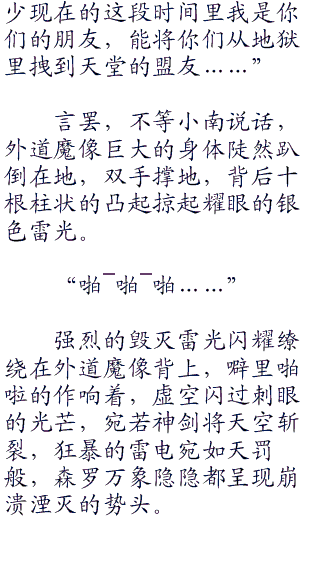 少现在的这段时间里我是你
们的朋友，能将你们从地狱
里拽到天堂的盟友……”
言罢，不等小南说话，
外道魔像巨大的身体陡然趴
倒在地，双手撑地，背后十
根柱状的凸起掠起耀眼的银
色雷光。
“啪¯啪¯啪……”
强烈的毁灭雷光闪耀缭
绕在外道魔像背上，噼里啪
啦的作响着，虚空闪过刺眼
的光芒，宛若神剑将天空斩
裂，狂暴的雷电宛如天罚
般，森罗万象隐隐都呈现崩
溃湮灭的势头。